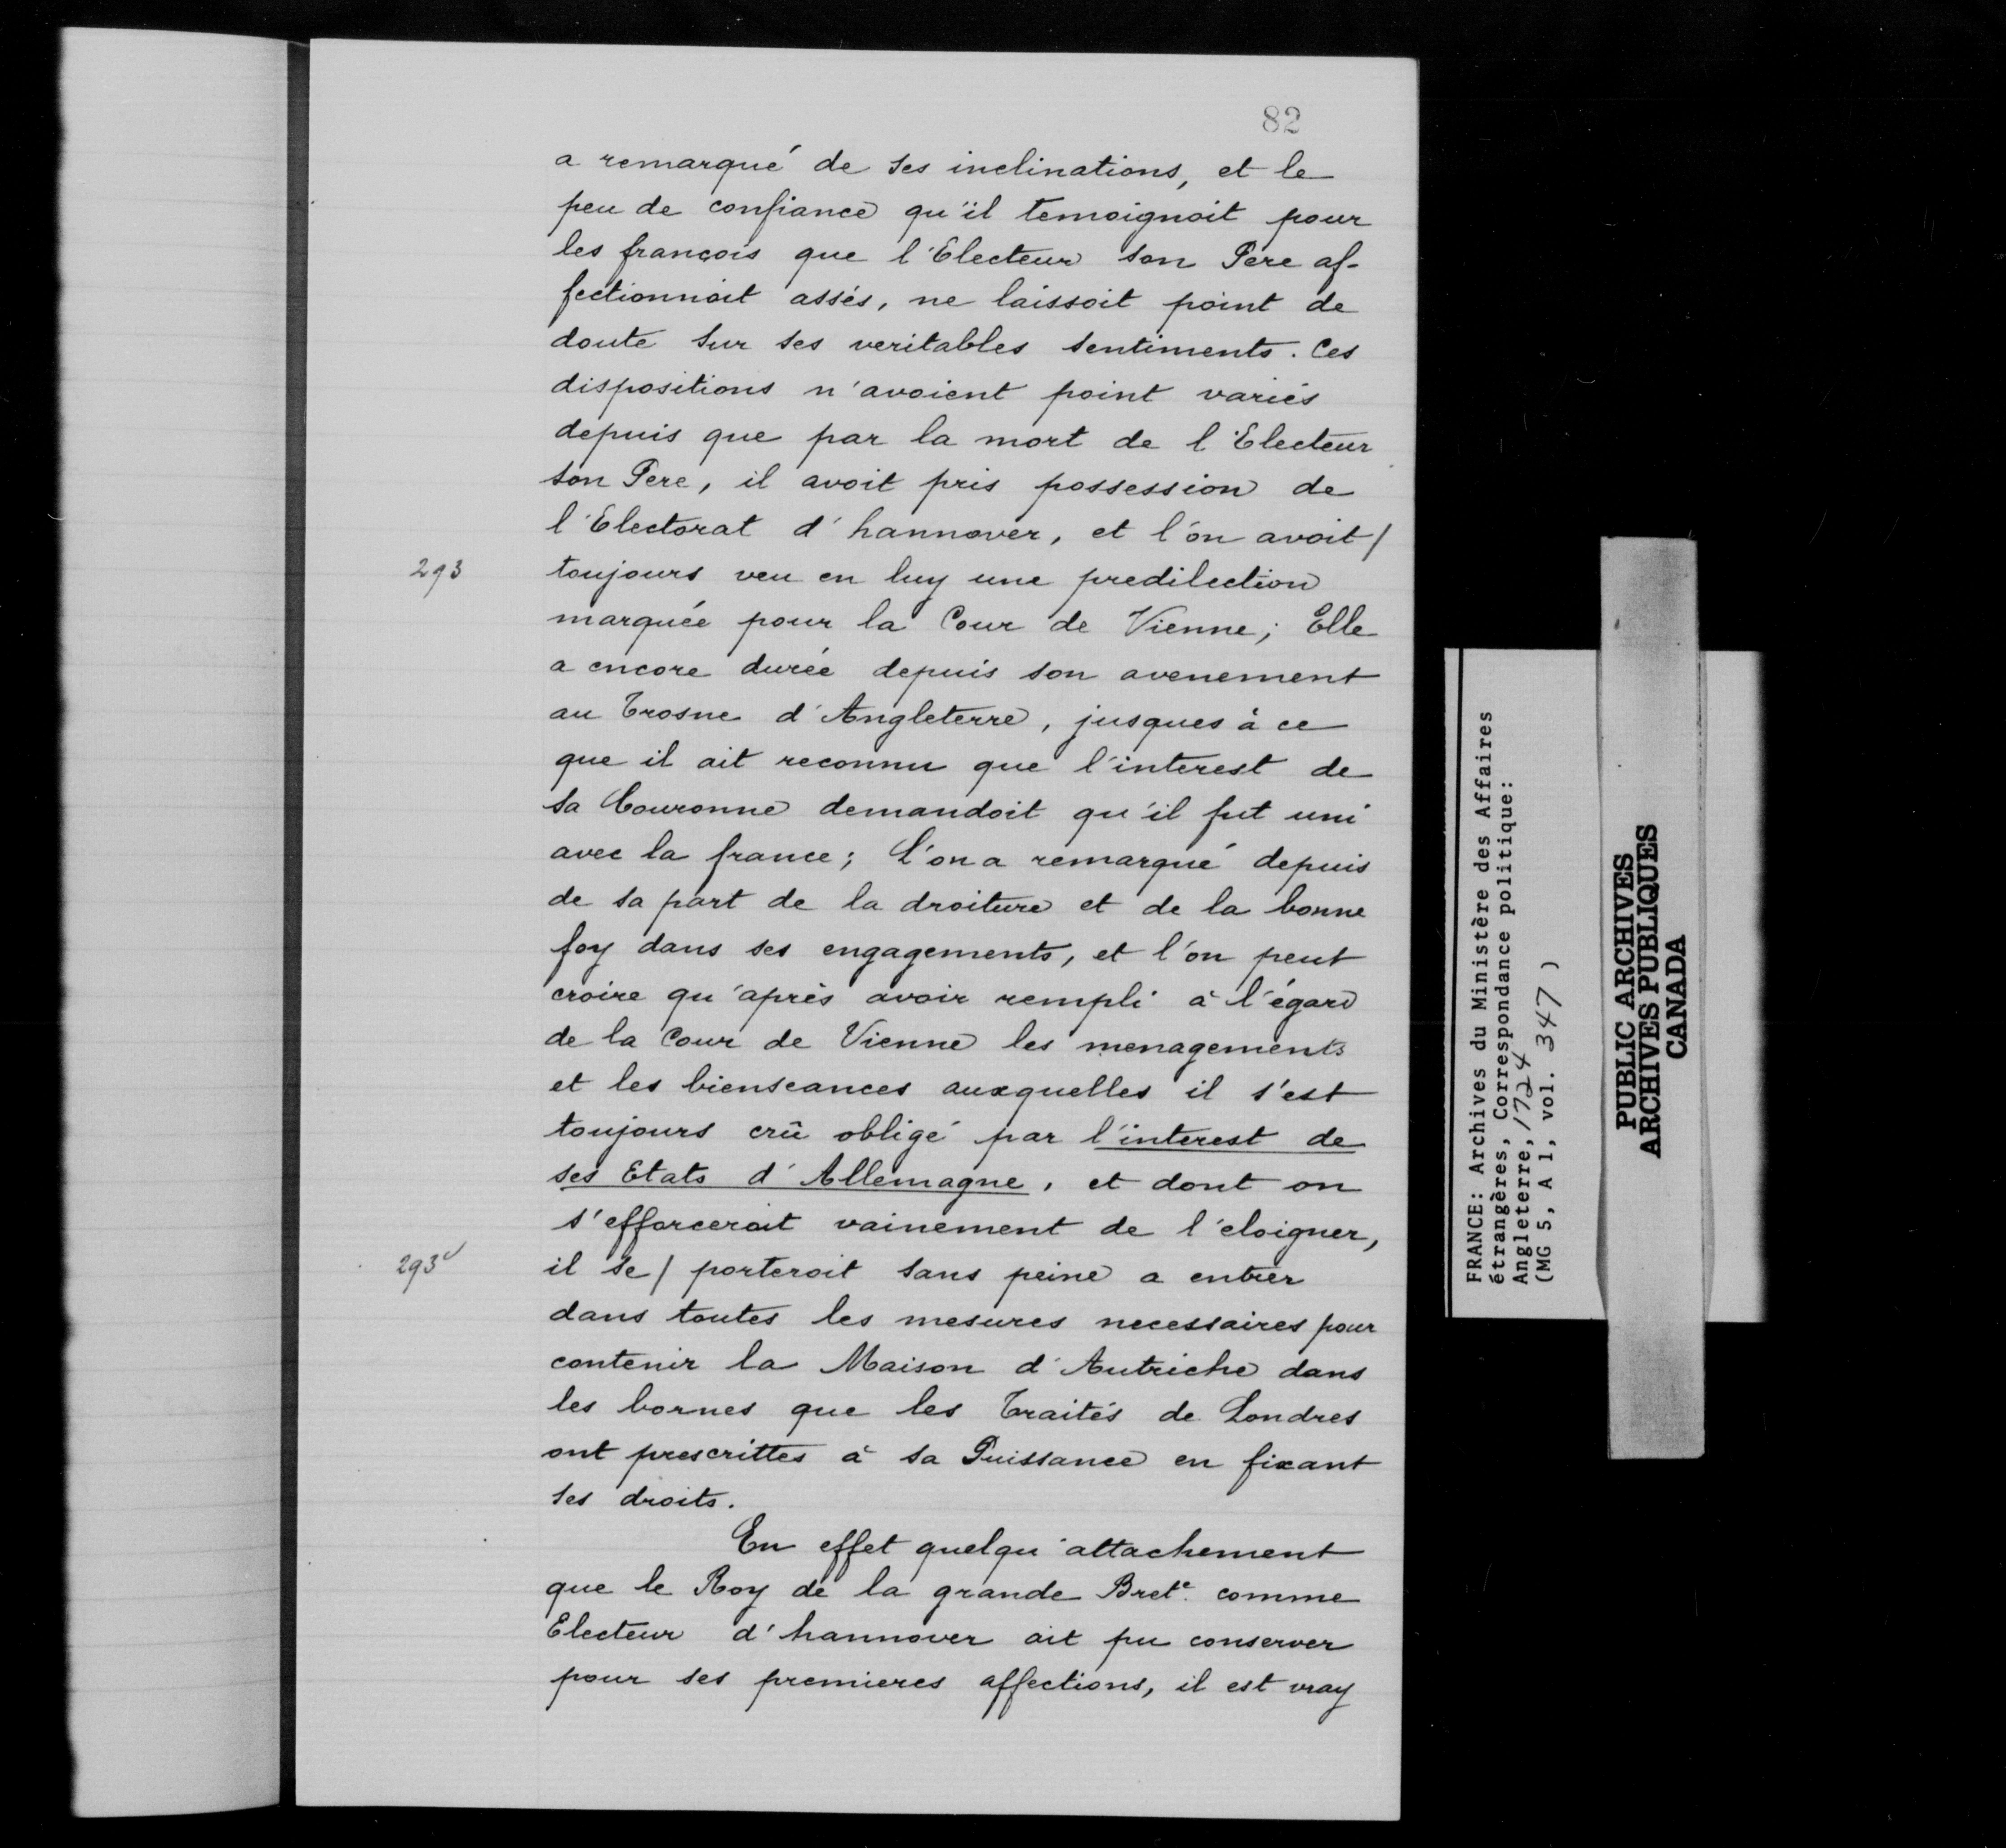 82
a remarqué de ses inclinations, et le
peu de confiance qu'il temoignoit pour
les françois que l'Electeur son Pere af-
fectionnoit assés, ne laissoit point de
doute sur ses veritables sentiments. Ces
dispositions n'avoient point variés
depuis que par la mort de l'Electeur
son Pere, il avoit pris possession de
l'Electorat d'hannover, et l'on avoit/
293 toujours veu en luy une predilection
marquée pour la Cour de Vienne; Elle
a encore durée depuis son avenement
au Trosne d'Angleterre, jusques à ce
que il ait reconnu que l'interest de
sa Couronne demandoit qu'il fut uni
avec la france; L'on a remarqué depuis
de sa part de la droiture et de la bonne
foy dans ses engagements, et l'on peut
croire qu'après avoir rempli à l'égard
de la Cour de Vienne les menagements
et les bienseances auxquelles il s'est
toujours crû obligé par l'interest de
ses Etats d'Allemagne, et dont on
s'efforceroit vainement de l'eloigner,
293v il se/ porteroit sans peine a entrer
dans toutes les mesures necessaires pour
contenir la Maison d'Autriche dans
les bornes que les Traités de Londres
ont prescrittes à sa Puissance en fixant
ses droits.
En effet quelqu'attachement
que le Roy de la grande Brete. comme
Electeur d'hannover ait pu conserver
pour ses premieres affections, il est vray
FRANCE: Archives du Ministère des Affaires
étrangères, Correspondance politique:
Angleterre, 1724
(MG 5, A 1, vol. 347)
PUBLIC ARCHIVES
ARCHIVES PUBLIQUES
CANADA